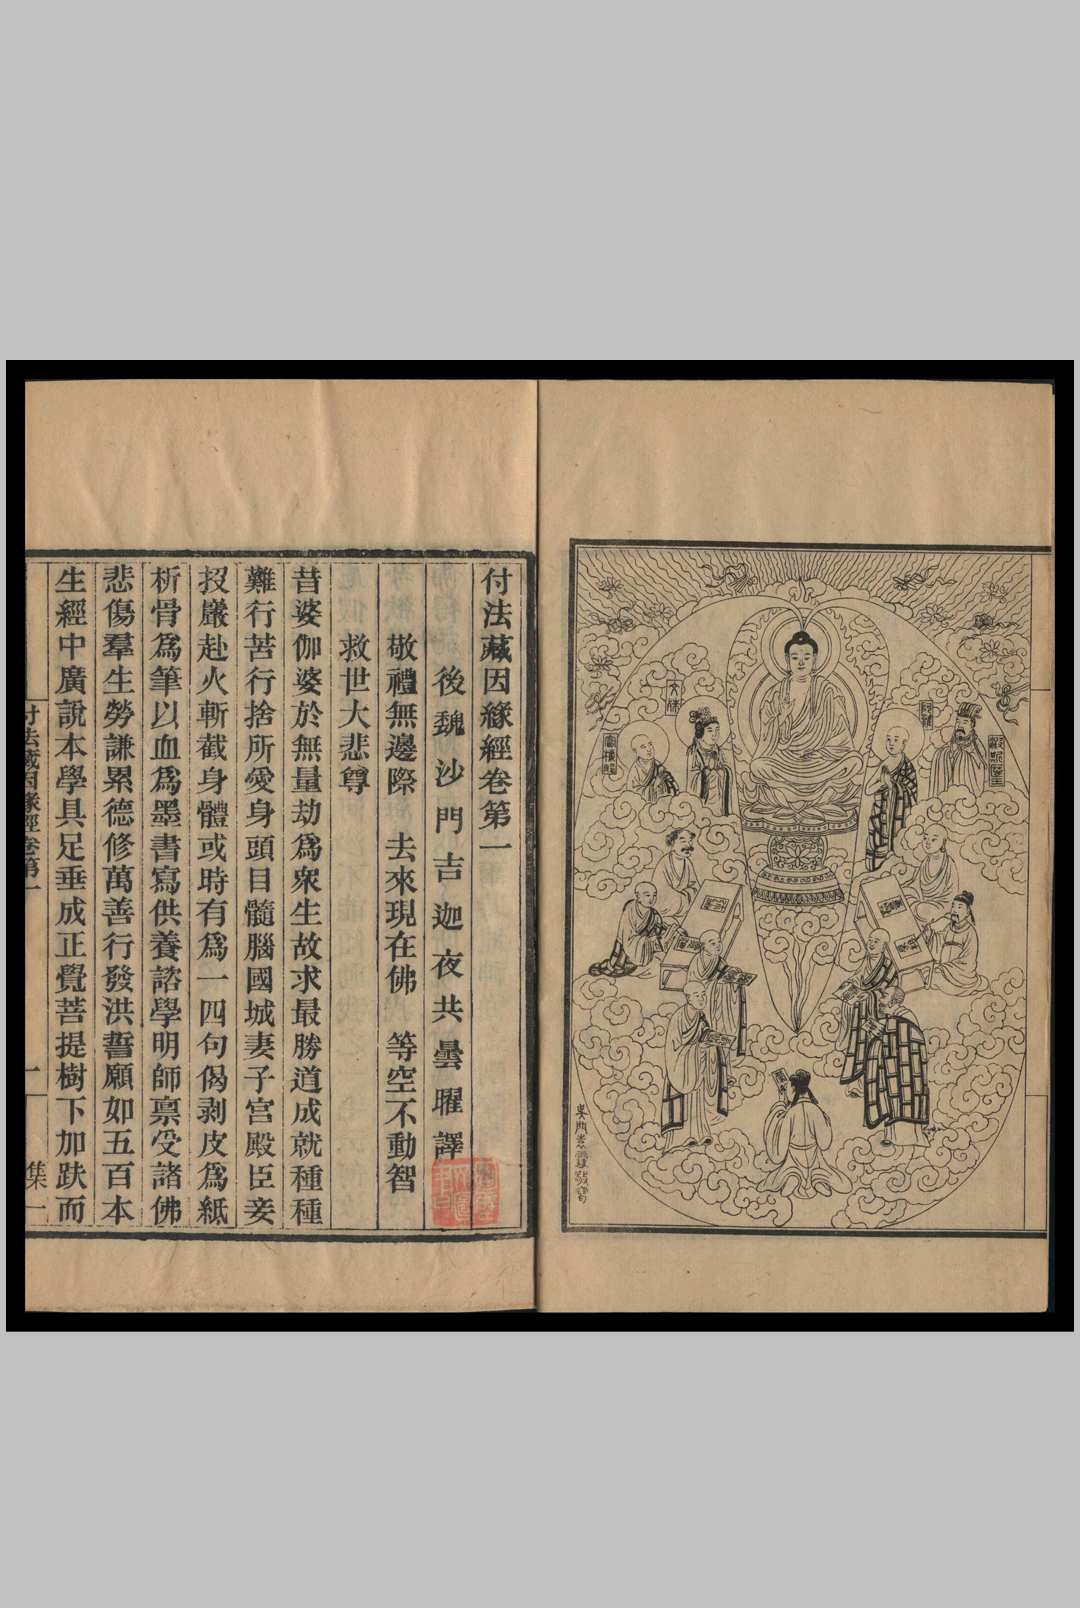 阿難
波斯匿王
文殊
吳門李靈敬繪
付法藏因緣經卷第一
後魏沙門吉迦夜共曇曜譯
敬禮無邊際　去來現在佛　等空不動智
救世大悲尊
昔婆伽婆於無量劫爲衆生故求最勝道成就種種
難行苦行捨所愛身頭目髓腦國城妻子宮殿臣妾
投巖赴火斬截身體或時有爲一四句偈剥皮爲紙
析骨爲筆以血爲墨書寫供養諮學明師禀受諸佛
悲傷羣生勞謙累德修萬善行發洪誓願如五百本
生經中廣說本學具足垂成正覺菩提樹下加趺而
付法藏因緣經卷第一
一
集一